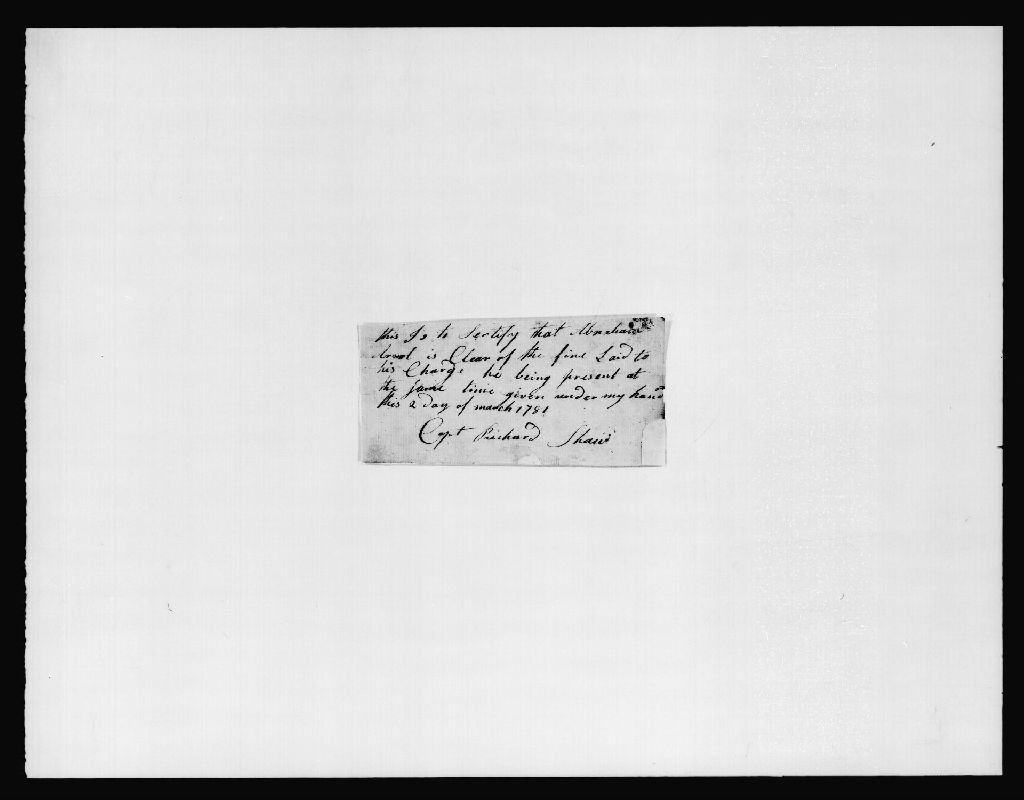 this Is to Sertify that Abraham
Arnol is Clear of the fine Laid to
his Charge he being present at
the same time given under my hand
this 2 day of march 1781
Capt Richard Shaw